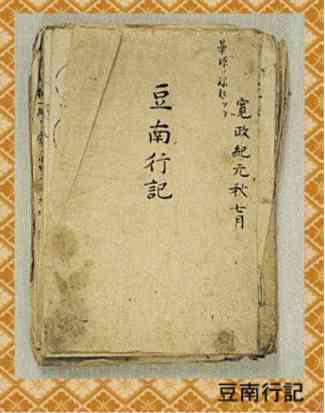 寛政紀元秋七月
豆南行記
豆南行記